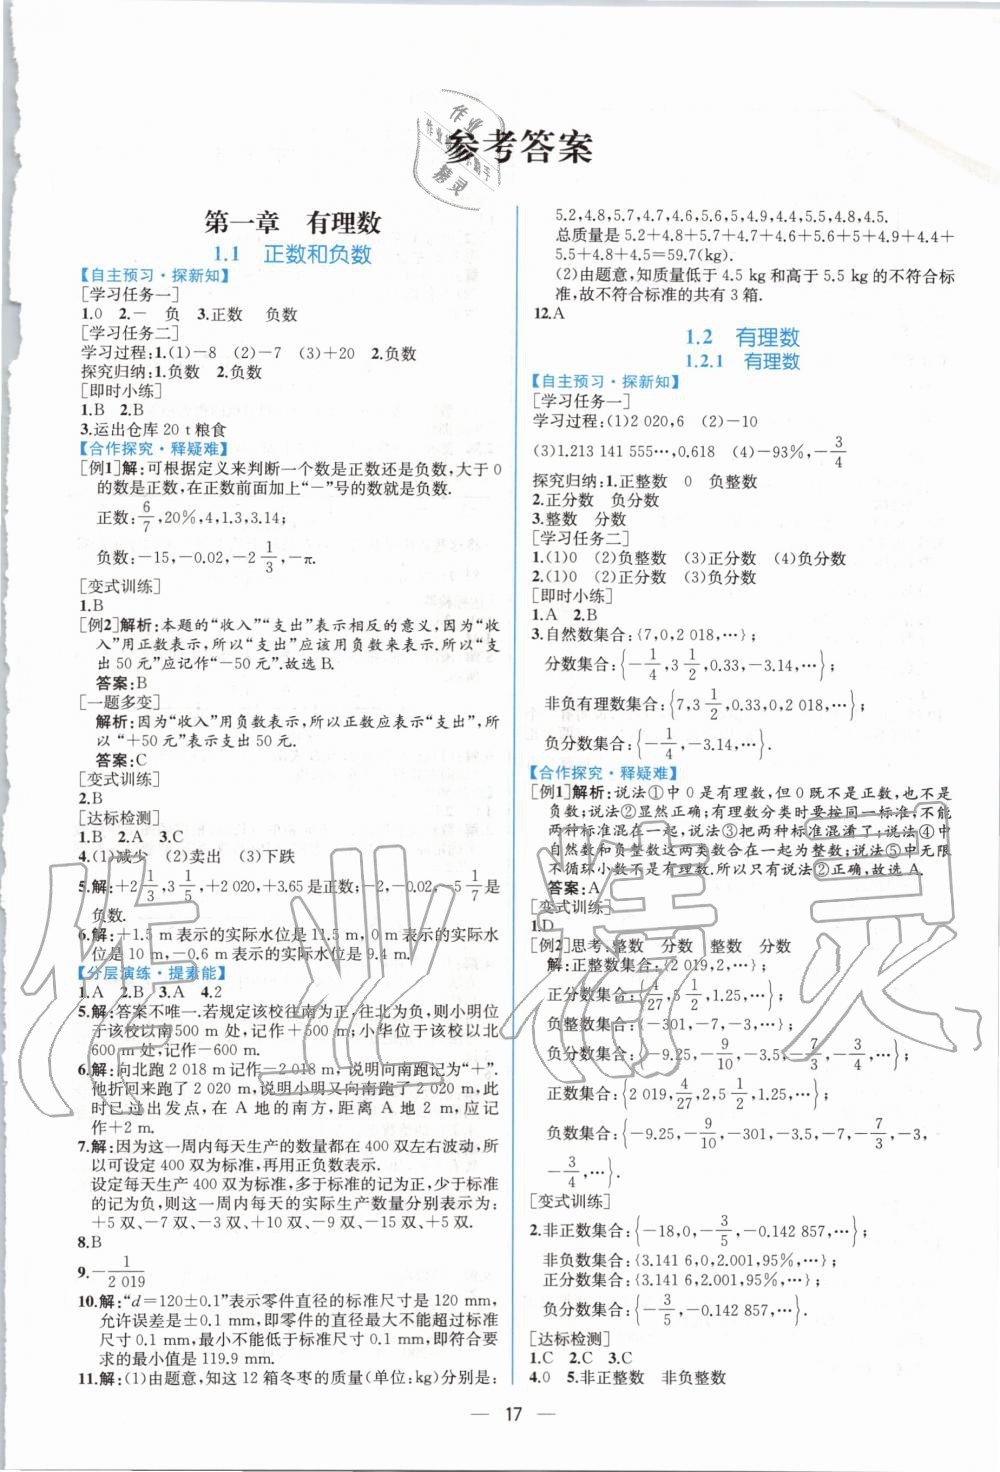 参考答案
第一章　有理数
1.1　正数和负数
【自主预习·探新知】
[学习任务一]
1.0　2.－　负　3.正数　负数
[学习任务二]
学习过程:1.(1)－8　(2)－7　(3)＋20　2.负数
探究归纳:1.负数　2.负数
[即时小练]
1.B　2.B
3.运出仓库20 t粮食
【合作探究·释疑难】
[例1]解:可根据定义来判断一个数是正数还是负数,大于0
的数是正数,在正数前面加上“－”号的数就是负数.
正数:6/7,20%,4,1.3,3.14;
负数:－15,－0.02,－2 1/3,－π.
[变式训练]
1.B
[例2]解析:本题的“收入”“支出”表示相反的意义,因为“收
入”用正数表示,所以“支出”应该用负数来表示.所以“支
出50元”应记作“－50元”.故选B.
答案:B
[一题多变]
解析:因为“收入”用负数表示,所以正数应表示“支出”,所
以“＋50元”表示支出50元.
答案:C
[变式训练]
2.B
[达标检测]
1.B　2.A　3.C
4.(1)减少　(2)卖出　(3)下跌
5.解:＋2 1/3,3 1/5,＋2 020,＋3.65是正数;－2,－0.02,－5 1/7是
负数.
6.解:＋1.5 m表示的实际水位是11.5 m,0 m表示的实际水
位是10 m,－0.6 m表示的实际水位是9.4 m.
【分层演练·提素能】
1.A　2.B　3.A　4.2
5.解:答案不唯一.若规定该校往南为正,往北为负,则小明位
于该校以南500 m处,记作＋500 m;小华位于该校以北
600 m处,记作－600 m.
6.解:向北跑2 018 m记作－2 018 m,说明向南跑记为“＋”.
他折回来跑了2 020 m,说明小明又向南跑了2 020 m,此
时已过出发点,在A地的南方,距离A地2 m,应记
作＋2 m.
7.解:因为这一周内每天生产的数量都在400双左右波动,所
以可设定400双为标准,再用正负数表示.
设定每天生产400双为标准,多于标准的记为正,少于标准
的记为负,则这一周内每天的实际生产数量分别表示为:
＋5双,－7双,－3双,＋10双,－9双,－15双,＋5双.
8.B
9.－1/2 019
10.解:“d＝120±0.1”表示零件直径的标准尺寸是120 mm,
允许误差是±0.1 mm,即零件的直径最大不能超过标准
尺寸0.1 mm,最小不能低于标准尺寸0.1 mm,即符合要
求的最小值是119.9 mm.
11.解:(1)由题意,知这12箱冬枣的质量(单位:kg)分别是:
5.2,4.8,5.7,4.7,4.6,5.6,5,4.9,4.4,5.5,4.8,4.5.
总质量是5.2＋4.8＋5.7＋4.7＋4.6＋5.6＋5＋4.9＋4.4＋
5.5＋4.8＋4.5＝59.7(kg).
(2)由题意,知质量低于4.5 kg和高于5.5 kg的不符合标
准,故不符合标准的共有3箱.
12.A
1.2　有理数
1.2.1　有理数
【自主预习·探新知】
[学习任务一]
学习过程:(1)2 020,6　(2)－10
(3)1.213 141 555…,0.618　(4)－93%,－3/4
探究归纳:1.正整数　0　负整数
2.正分数　负分数
3.整数　分数
[学习任务二]
1.(1)0　(2)负整数　(3)正分数　(4)负分数
2.(1)0　(2)正分数　(3)负分数
[即时小练]
1.A　2.B
3.自然数集合:{7,0,2 018,…};
分数集合:{－1/4,3 1/2,0.33,－3.14,…};
非负有理数集合:{7,3 1/2,0.33,0,2 018,…};
负分数集合:{－1/4,－3.14,…}.
【合作探究·释疑难】
[例1]解析:说法①中0是有理数,但0既不是正数,也不是
负数;说法②显然正确;有理数分类时要按同一标准,不能
两种标准混在一起,说法③把两种标准混淆了;说法④中
自然数和负整数这两类数合在一起为整数;说法⑤中无限
不循环小数不是有理数.所以只有说法②正确,故选A.
答案:A
[变式训练]
1.D
[例2]思考:整数　分数　整数　分数
解:正整数集合:{2 019,2,…};
正分数集合:{4/27,5 1/2,1.25,…};
负整数集合:{－301,－7,－3,…};
负分数集合:{－9.25,－9/10,－3.5,－7/3,－3/4,…};
正数集合:{2 019,4/27,2,5 1/2,1.25,…};
负数集合:{－9.25,－9/10,－301,－3.5,－7,－7/3,－3,
－3/4,…}.
[变式训练]
2.非正数集合:{－18,0,－3/5,－0.142 857,…};
非负数集合:{3.141 6,0,2.001,95%,…};
正分数集合:{3.141 6,2.001,95%,…};
负分数集合:{－3/5,－0.142 857,…}.
[达标检测]
1.C　2.C　3.C
4.0　5.非正整数　非负整数
— 17 —
作业精灵